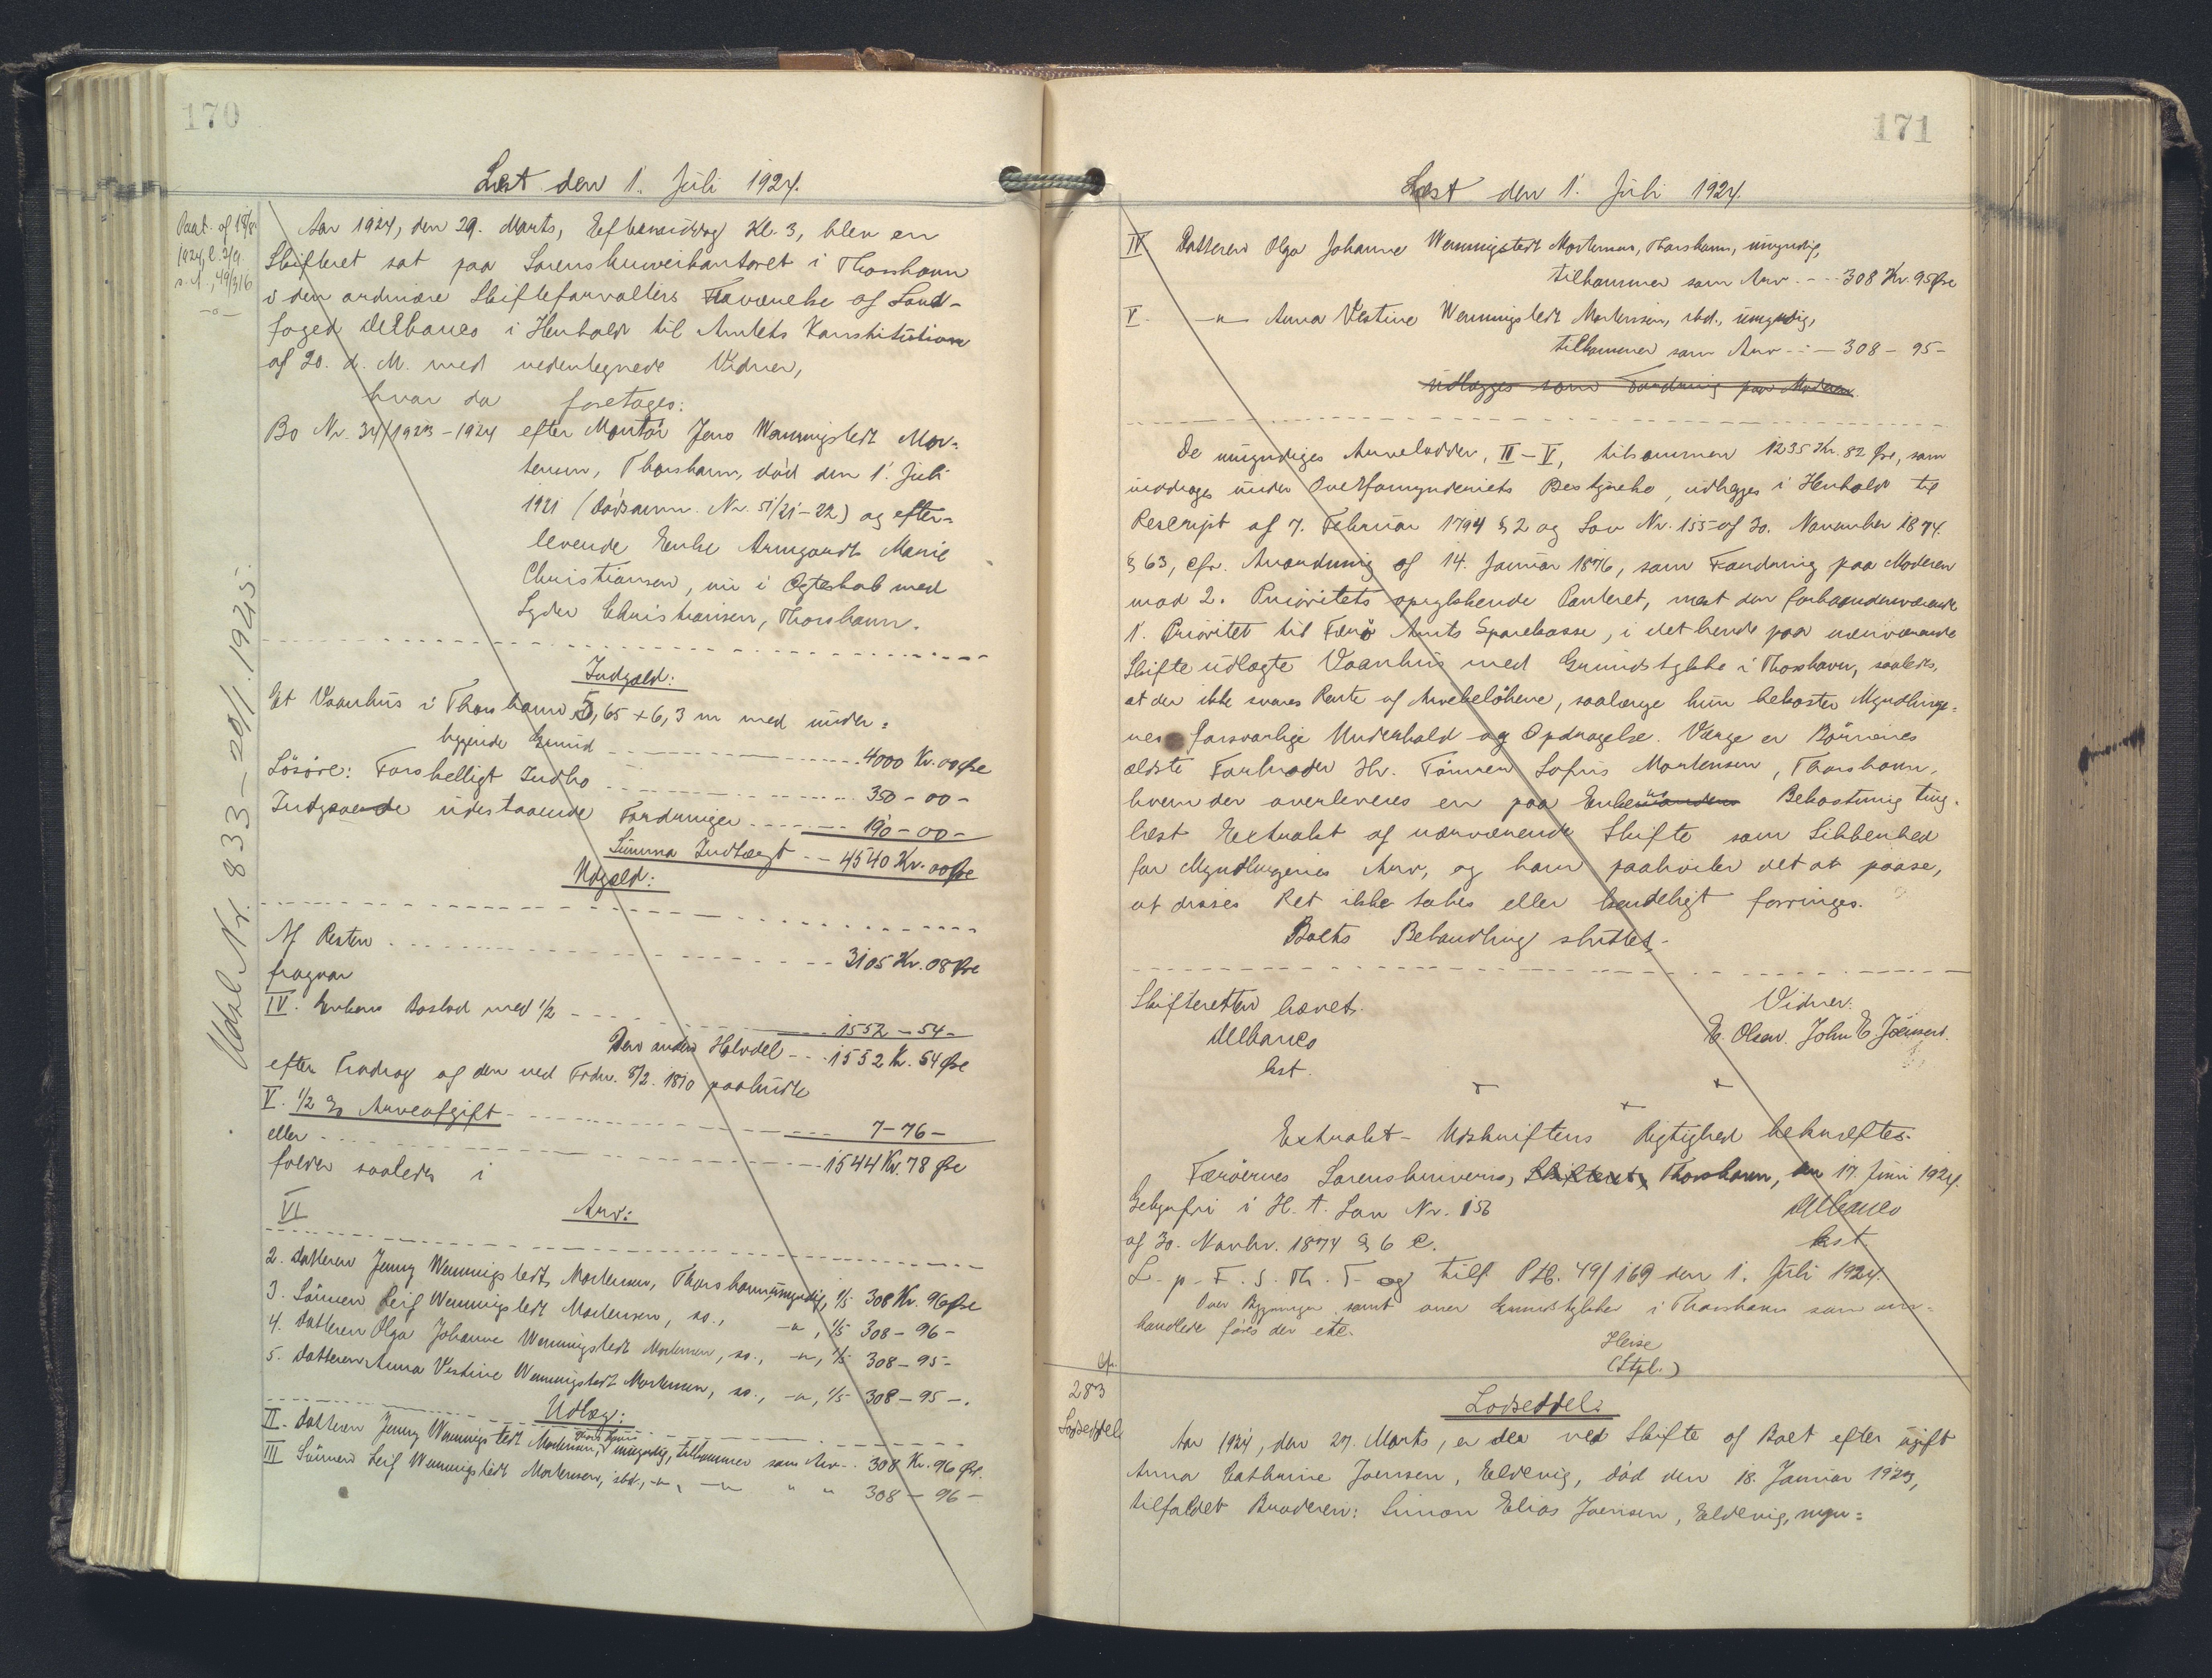 170
Læst den 1. Juli 1924.
Paat. af 18/8
1924, l. 2/9
s. A., 49/316
Aar 1924, den 29. Marts, Eftermiddag Kl. 3, blev en
Skifteret sat paa Sorenskriverkontoret i Thorshavn
i den ordinære Skifteforvalters Fraværelse af Land-
foged Delbanco i Henhold til Amtets Konstitution
af 20. d. M. med undertegnede Vidner,
hvor da foretages:
Bo Nr. 34/1923-1924 efter Montør Jens Wenningstedt Mor-
tensen, Thorshavn, død den 1. Juli
1921 (Dødsanm. Nr. 51/21-22) og efter-
levende Enke Armgardt Marie
Christiansen, nu i Ægteskab med
Lyder Christiansen, Thorshavn.
Indgæld:
Et Vaanhus i Thorshavn, 5,65 x 6,3 m med under-
liggende Grund 4000 Kr. 00 Øre
Løsøre: Forskelligt Indbo 350 - 00 -
Indgaaede udestaaende Fordringer 190 - 00 -
Summa Indtægt - - 4540 Kr. 00 Øre
Udgæld:
Af Resten 3105 Kr. 08 Øre
fragaar
IV. Enkens Boslod med 1/2 1552 - 54 -
Den anden Halvdel - - 1552 Kr. 54 Øre
efter Fradrag af den ved Frdn. 8/2. 1810 paabudte
V. 1/2 % Arveafgift 7 - 76 -
eller 1544 Kr. 78 Øre
falder saaledes i
VI Arv:
2. Datteren Jenny Wenningstedt Mortensen, Thorshavn, umyndig, 1/5 308 Kr. 96 Øre
3. Sønnen Leif Wenningstedt Mortensen, so., -"-, 1/5 308 - 96 -
4. Datteren Olga Johanne Wenningstedt Mortensen, so., -"-, 1/5 308 - 95 -
5. Datteren Anna Vestine Wenningstedt Mortensen, so., -"-, 1/5 308 - 95 -.
Udlæg:
II. Datteren Jenny Wenningstedt Mortensen, Thorshavn, umyndig, tilkommer som Arv - 308 Kr. 96 Øre.
III Sønnen Leif Wenningstedt Mortensen, sbd., -"-, -"- " " 308 - 96 -
Udsl. Nr. 833 - 20/1. 1925.
171
Læst den 1. Juli 1924.
IV Datteren Olga Johanne Wenningstedt Mortensen, Thorshavn, umyndig,
tilkommer som Arv - - - 308 Kr. 95 Øre
V. -"- Anna Vestine Wenningstedt Mortensen, sbd., umyndig,
tilkommer som Arv - - - 308 - 95 -
udlægges som Fordring paa Moderen.
De umyndiges Arvelodder, II-V, tilsammen 1235 Kr. 82 Øre, som
inddrages under Overformynderiets Bestyrelse, udlægges i Henhold til
Rescript af 7. Februar 1794 § 2 og Lov Nr. 155 af 30. November 1874
§ 63, cfr. Anordning af 14. Januar 1876, som Fordring paa Moderen
mod 2. Prioritets oprykkende Panteret, næst den forhaandenværende
1. Prioritet til Færø Amts Sparekasse, i det hende paa nærværende
Skifte udlagte Vaanhus med Grundstykke i Thorshavn, saaledes,
at der ikke svares Rente af Arvebeløbene, saalænge hun bekoster Myndlinge-
nes forsvarlige Underhold og Opdragelse. Værge er Børnenes
ældste Farbroder Hr. Tømrer Sofus Mortensen, Thorshavn,
hvem der overleveres en paa Enkens Bekostning ting-
læst Extrakt af nærværende Skifte som Sikkerhed
for Myndlingernes Arv, og ham paahviler det at paase,
at disses Ret ikke tabes eller kendeligt forringes.
Boets Behandling sluttet.
Skifteretten hævet.
Vidner:
Delbanco
kst.
E. Olsen. John E. Joensen.
Extrakt-Udskriftens Rigtighed bekræftes.
Færøernes Sorenskriveri, Skifteret, Thorshavn, den 17. Juni 1924.
Gebyrfri i H. t. Lov Nr. 156
Delbanco
af 30. Novbr. 1874 § 6 c.
kst.
L. p. F. S. Th. T. og tilf. Ptb. 49/169 den 1. Juli 1924.
Over Bygninger samt over Grundstykker i Thorshavn som om-
handlede føres der ete.
Heise
(Stpl.)
283
Lodseddel
Lodseddel.
Aar 1924, den 27. Marts, er der ved Skifte af Boet efter ugift
Anna Cathrine Joensen, Eldevig, død den 18. Januar 1923,
tilfaldet Broderen: Simon Elias Joensen, Eldevig, myn-